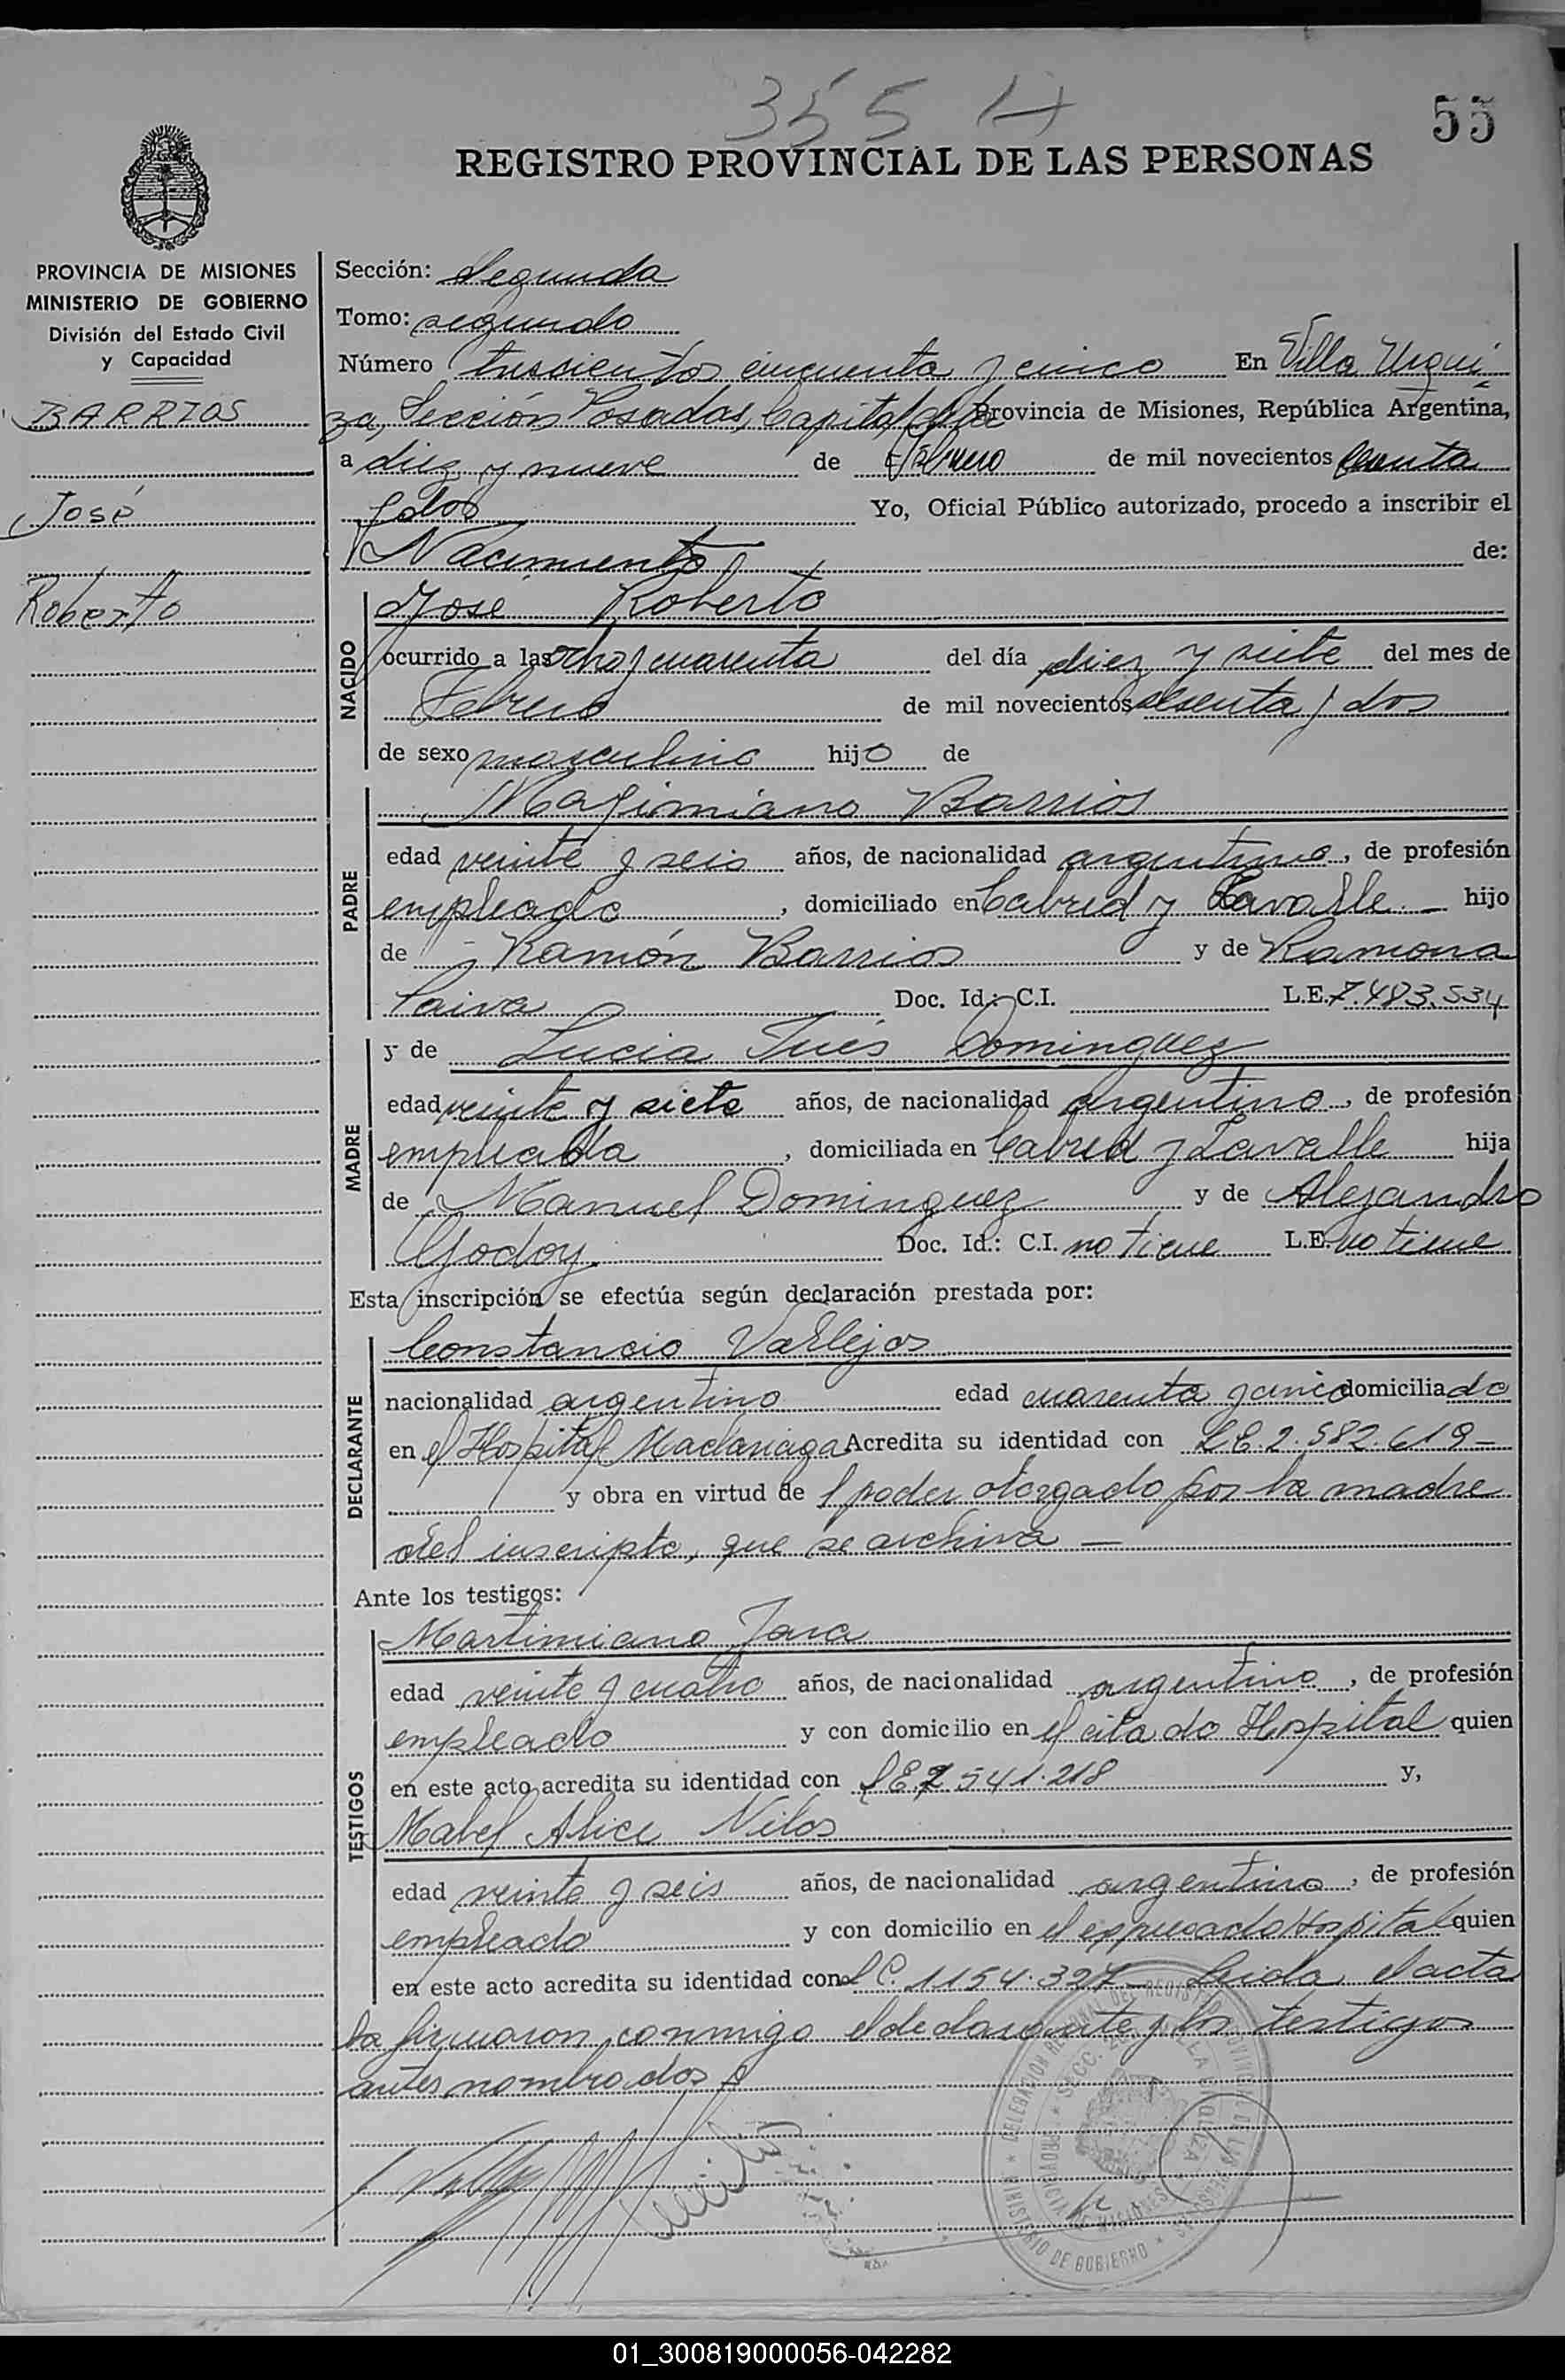 355 H
55
REGISTRO PROVINCIAL DE LAS PERSONAS
PROVINCIA DE MISIONES
MINISTERIO DE GOBIERNO
División del Estado Civil
y Capacidad
BARRIOS
José
Roberto
Sección: Segunda
Tomo: segundo
Número trescientos cincuenta y cinco En Villa Urqui
za, Sección Posadas, Capital de la Provincia de Misiones, República Argentina,
a diez y nueve de Febrero de mil novecientos sesenta
y dos Yo, Oficial Público autorizado, procedo a inscribir el
Nacimiento de:
NACIDO
José Roberto
ocurrido a las ocho y cuarenta del día diez y siete del mes de
Febrero de mil novecientos sesenta y dos
de sexo masculino hijo de
PADRE
Magimiano Barrios
edad veinte y seis años, de nacionalidad argentino, de profesión
empleado, domiciliado en Cabred y Lavalle hijo
de Ramón Barrios y de Ramona
Paiva Doc. Id.: C.I. L.E. 7.483.534
MADRE
y de Lucia Inés Dominguez
edad veinte y siete años, de nacionalidad argentino, de profesión
empleada, domiciliada en Cabred y Lavalle hija
de Manuel Dominguez y de Alejandro
Godoy. Doc. Id.: C.I. no tiene L.E. no tiene
Esta inscripción se efectúa según declaración prestada por:
DECLARANTE
Constancio Vallejos
nacionalidad argentino edad cuarenta y cinco domiciliado
en el Hospital Madariaga Acredita su identidad con L.E. 2.582.619-
y obra en virtud de l poder otorgado por la madre
del inscripto, que se archiva —
Ante los testigos:
TESTIGOS
Martimiano Jara
edad veinte y cuatro años, de nacionalidad argentino, de profesión
empleado y con domicilio en el citado Hospital quien
en este acto acredita su identidad con LE 7541.218 y,
Mabel Alice Nilos
edad veinte y seis años, de nacionalidad argentino, de profesión
empleado y con domicilio en el expresado Hospital quien
en este acto acredita su identidad con L C. 1154.327 Leida el acta
la firmaron conmigo el declarante y los testigos
antes nombrados
DELEGACION DEL REGISTRO PROVINCIAL DE LAS PERSONAS
MINISTERIO DE GOBIERNO
SECC. 2 VILLA URQUIZA
PROVINCIA DE MISIONES
01_300819000056-042282